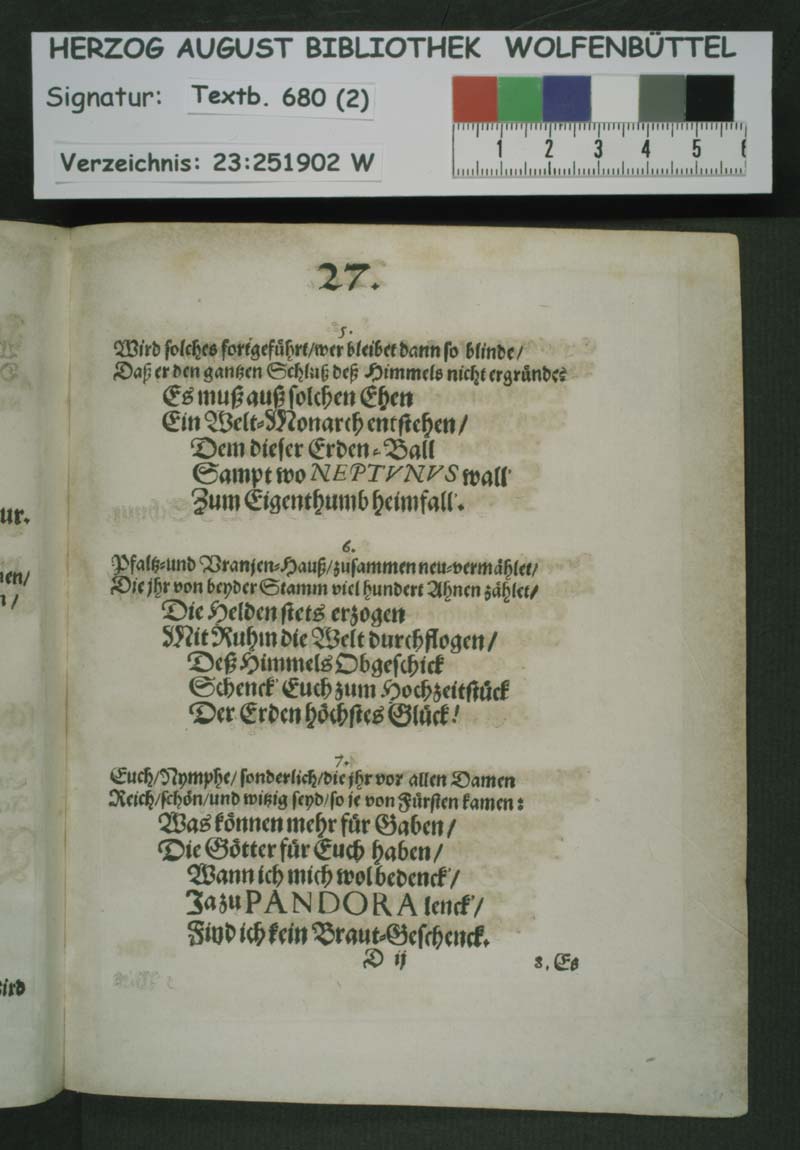 HERZOG AUGUST BIBLIOTHEK WOLFENBÜTTEL
Signatur: Textb. 680 (2)
Verzeichnis: 23:251902 W
1 2 3 4 5 6
27.
5.
Wird solches fortgeführt/wer bleibet dann so blinde/
Daß er den gantzen Schluß deß Himmels nicht ergründe?
Es muß auß solchen Ehen
Ein Welt-Monarch entstehen/
Dem dieser Erden-Ball
Sampt wo NEPTVNVS wall'
Zum Eigenthumb heimfall'.
6.
Pfaltz-und Vranjen-Hauß/zusammen neu-vermählet/
Die jhr von beyder Stamm viel hundert Ahnen zählet/
Die Helden stets erzogen
Mit Ruhm die Welt durchflogen/
Deß Himmels Obgeschick
Schenck' Euch zum Hochzeitstück
Der Erden höchstes Glück!
7.
Euch/Nymphe/sonderlich/die jhr vor allen Damen
Reich/schön/und witzig seyd/so je von Fürsten kamen:
Was können mehr für Gaben/
Die Götter für Euch haben/
Wann ich mich wol bedenck'/
Ja zu PANDORA lenck'/
Find ich kein Braut-Geschenck.
D ij
8. Es
ur.
nen/
n/
ird